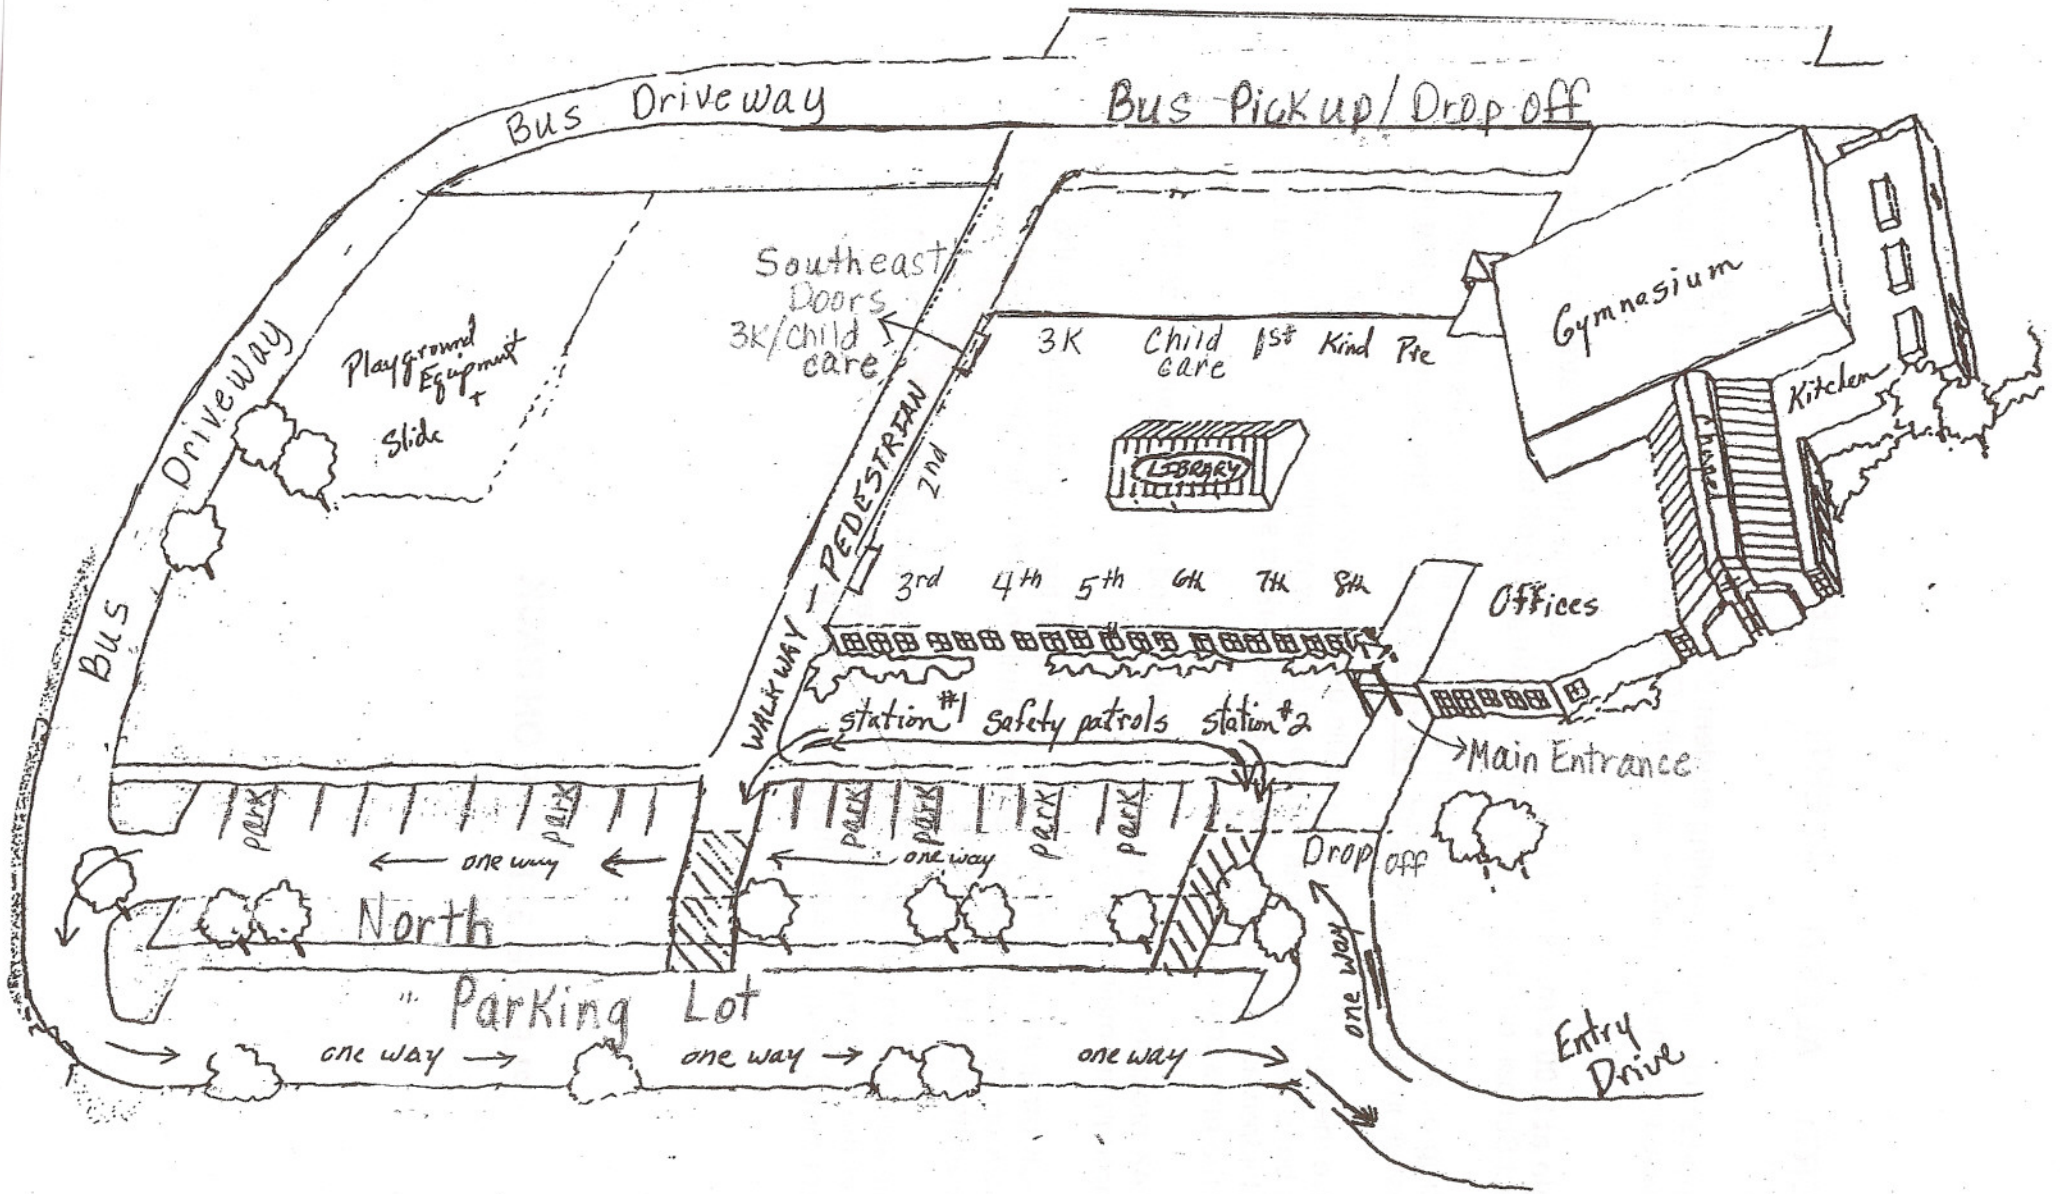 Bus Driveway
Bus Pickup/Drop off
Southeast
Doors
3K/Child
care
Playground
Equipment
+
Slide
Bus Driveway
3K
Child
care
1st
Kind
Pre
Gymnasium
Kitchen
Chapel
LIBRARY
2nd
WALKWAY - PEDESTRIAN
3rd
4th
5th
6th
7th
8th
Offices
station #1 safety patrols station #2
Main Entrance
park
park
park
park
park
park
one way
one way
Drop off
North
Parking Lot
one way
one way
one way
one way
Entry
Drive